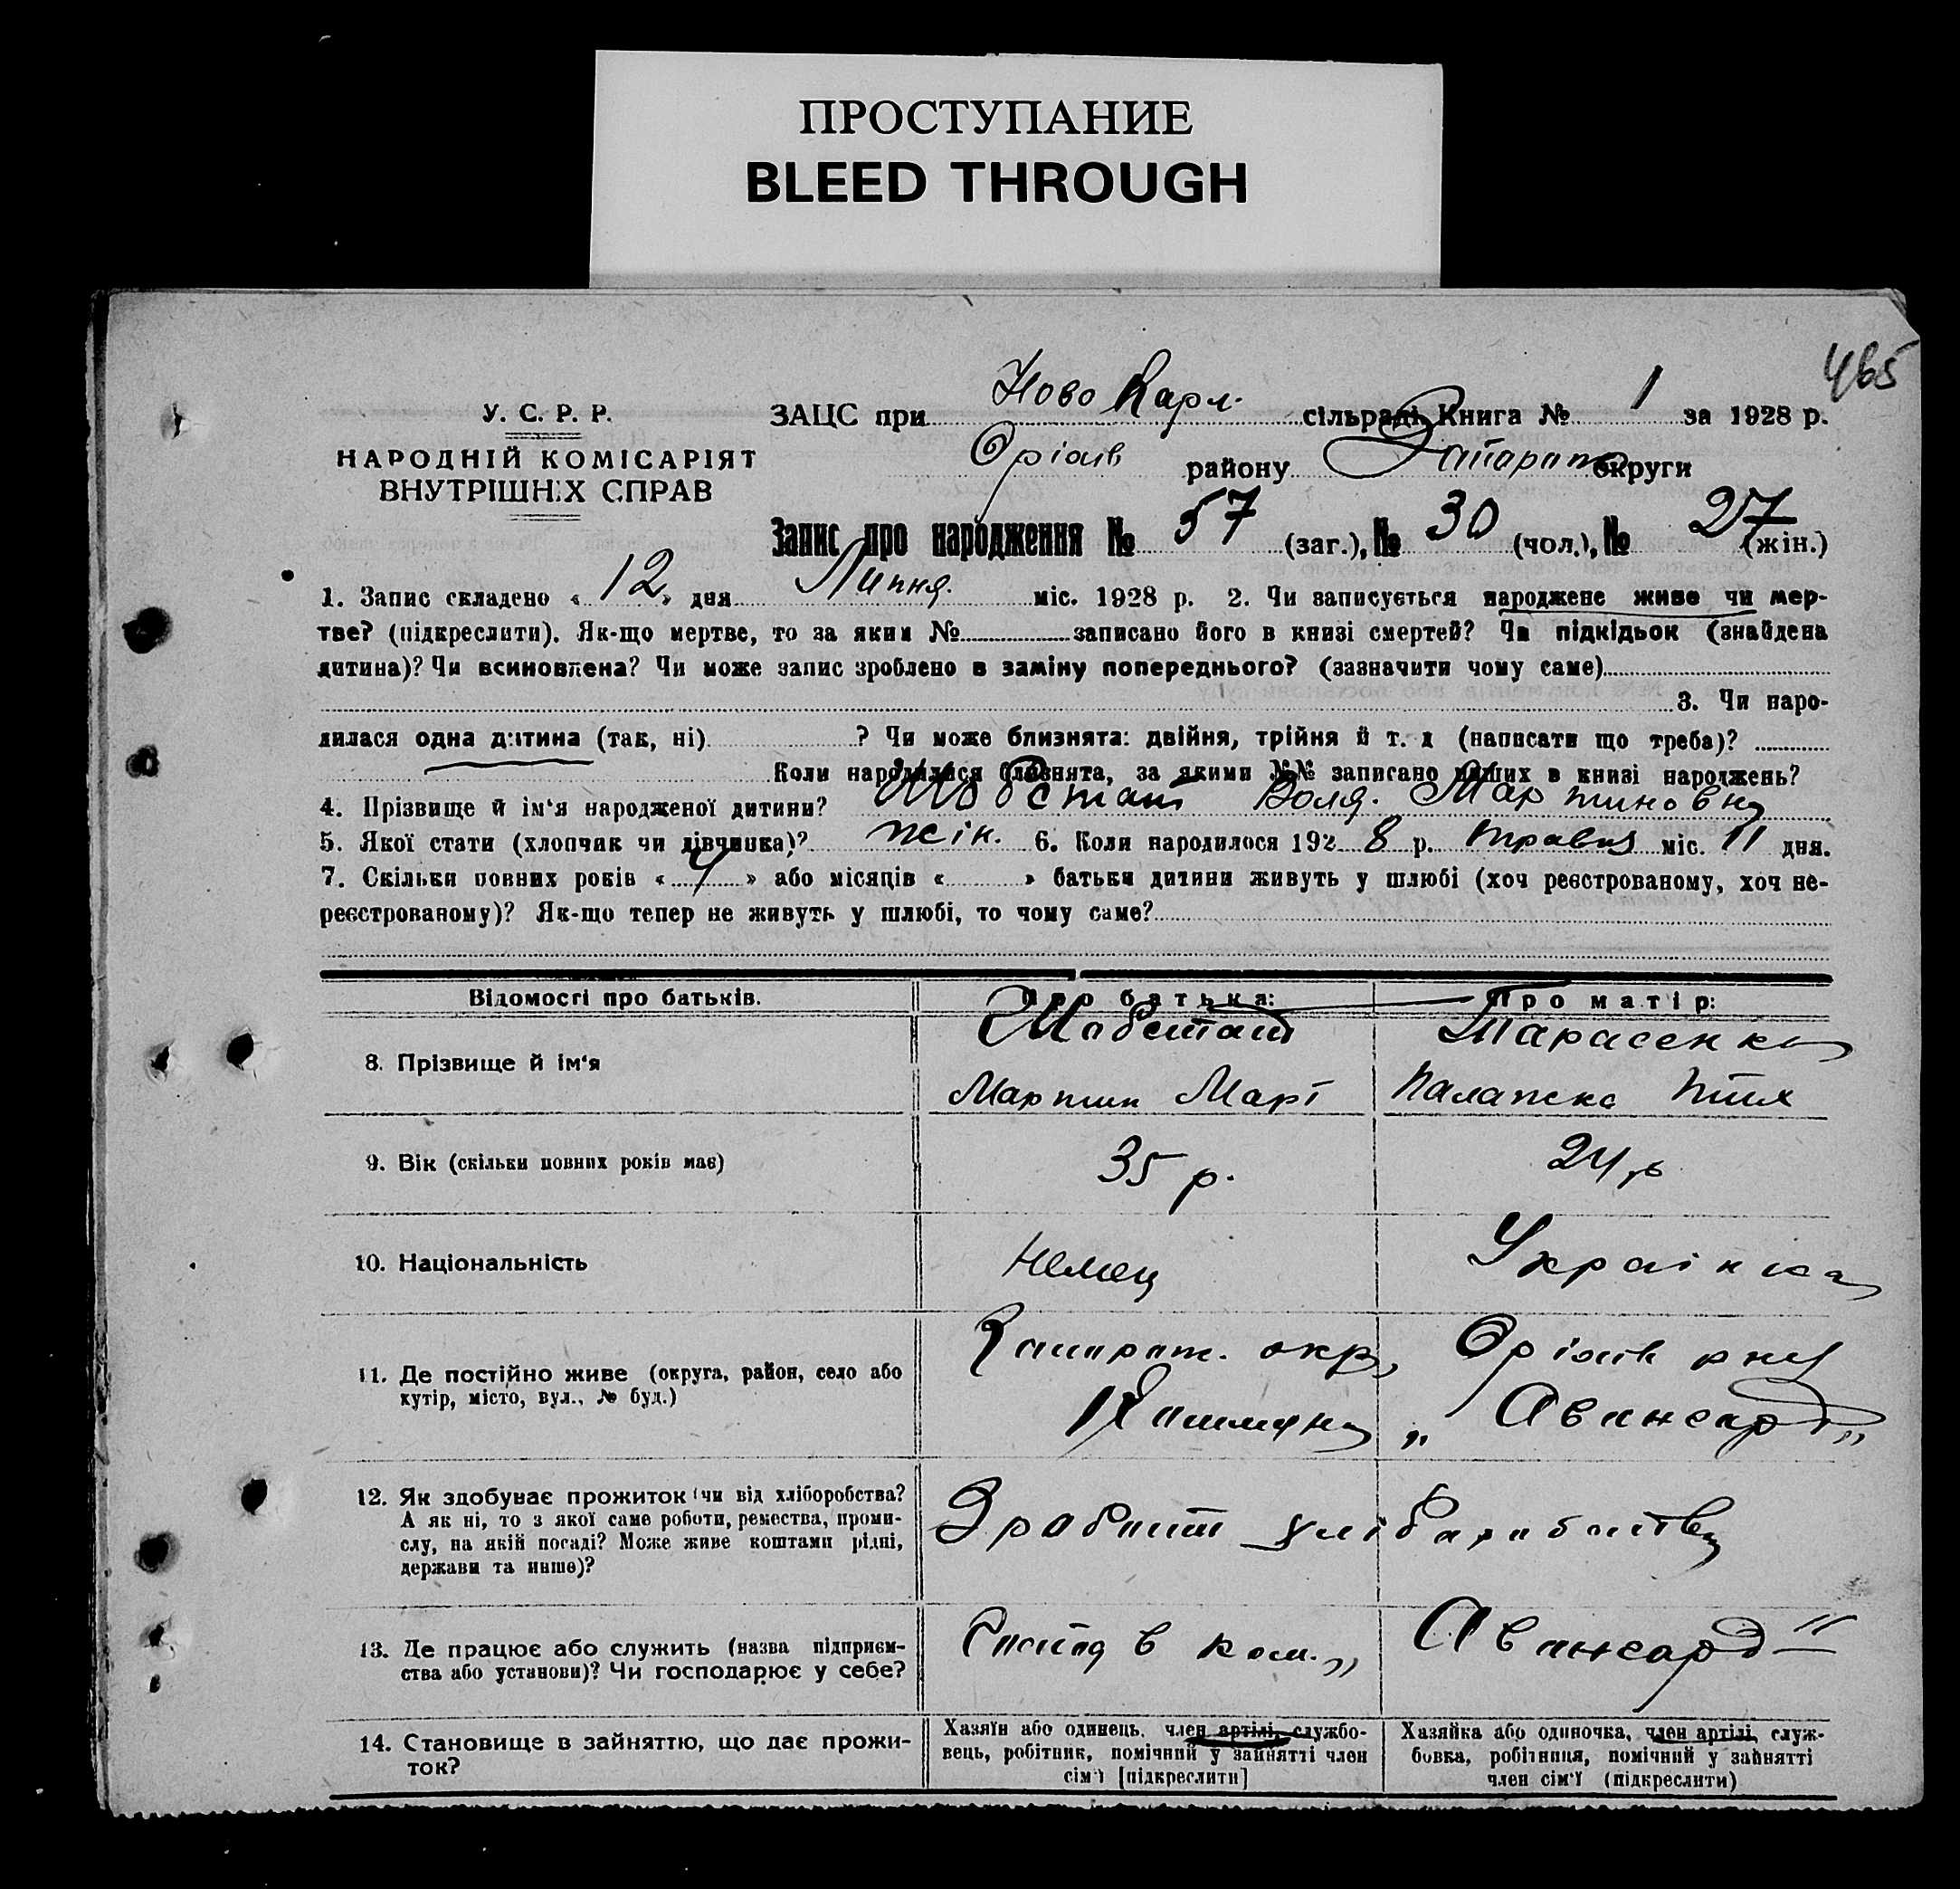 ПРОСТУПАНИЕ
BLEED THROUGH
465
У. С. Р. Р.
НАРОДНІЙ КОМІСАРІЯТ
ВНУТРІШНІХ СПРАВ
ЗАЦС при Ново Карл. сільраді Книга № 1 за 1928 р.
Оріхів району Запорит округи
Запис про народження № 57 (заг.), № 30 (чол.), № 27 (жін.)
1. Запис складено « 12 » дня Липня. міс. 1928 р. 2. Чи записується народжене живе чи мер-
тве? (підкреслити). Як-що мертве, то за яким № записано його в книзі смертей? Чи підкідьок (знайдена
дитина)? Чи всиновлена? Чи може запис зроблено в заміну попереднього? (зазначити чому саме)
3. Чи наро-
дилася одна дитина (так, ні) ? Чи може близнята: двійня, трійня й т. д (написати що треба)?
Коли народилися близнята, за якими №№ записано инших в книзі народжень?
4. Прізвище й ім'я народженої дитини? Воля. Мартиновна
5. Якої стати (хлопчик чи дівчинка)? жін. 6. Коли народилося 192 8 р. травня міс. 11 дня.
7. Скільки повних років « 4 » або місяців « » батьки дитини живуть у шлюбі (хоч реєстрованому, хоч не-
реєстрованому)? Як-що тепер не живуть у шлюбі, то чому саме?
Відомості про батьків.
Про батька:
Про матір:
8. Прізвище й ім'я
Шобстат
Мартин Март
Тарасенко
Палажка
9. Вік (скільки повних років має)
35 р.
24 р
10. Національність
Немец
Українка
11. Де постійно живе (округа, район, село або
хутір, місто, вул., № буд.)
Запорит. окр, Оріхів рну
„ Авангард„
12. Як здобуває прожиток (чи від хліборобства?
А як ні, то з якої саме роботи, ремества, проми-
слу, на якій посаді? Може живе коштами рідні,
держави та инше)?
13. Де працює або служить (назва підприєм-
ства або установи)? Чи господарює у себе?
в ком. „ Авангард"
14. Становище в зайняттю, що дає прожи-
ток?
Хазяїн або одинець, член артілі, службо-
вець, робітник, помічний у зайнятті член
сім'ї [підкреслити]
Хазяйка або одиночка, член артілі, служ-
бовка, робітниця, помічний у зайнятті
член сім'ї (підкреслити)